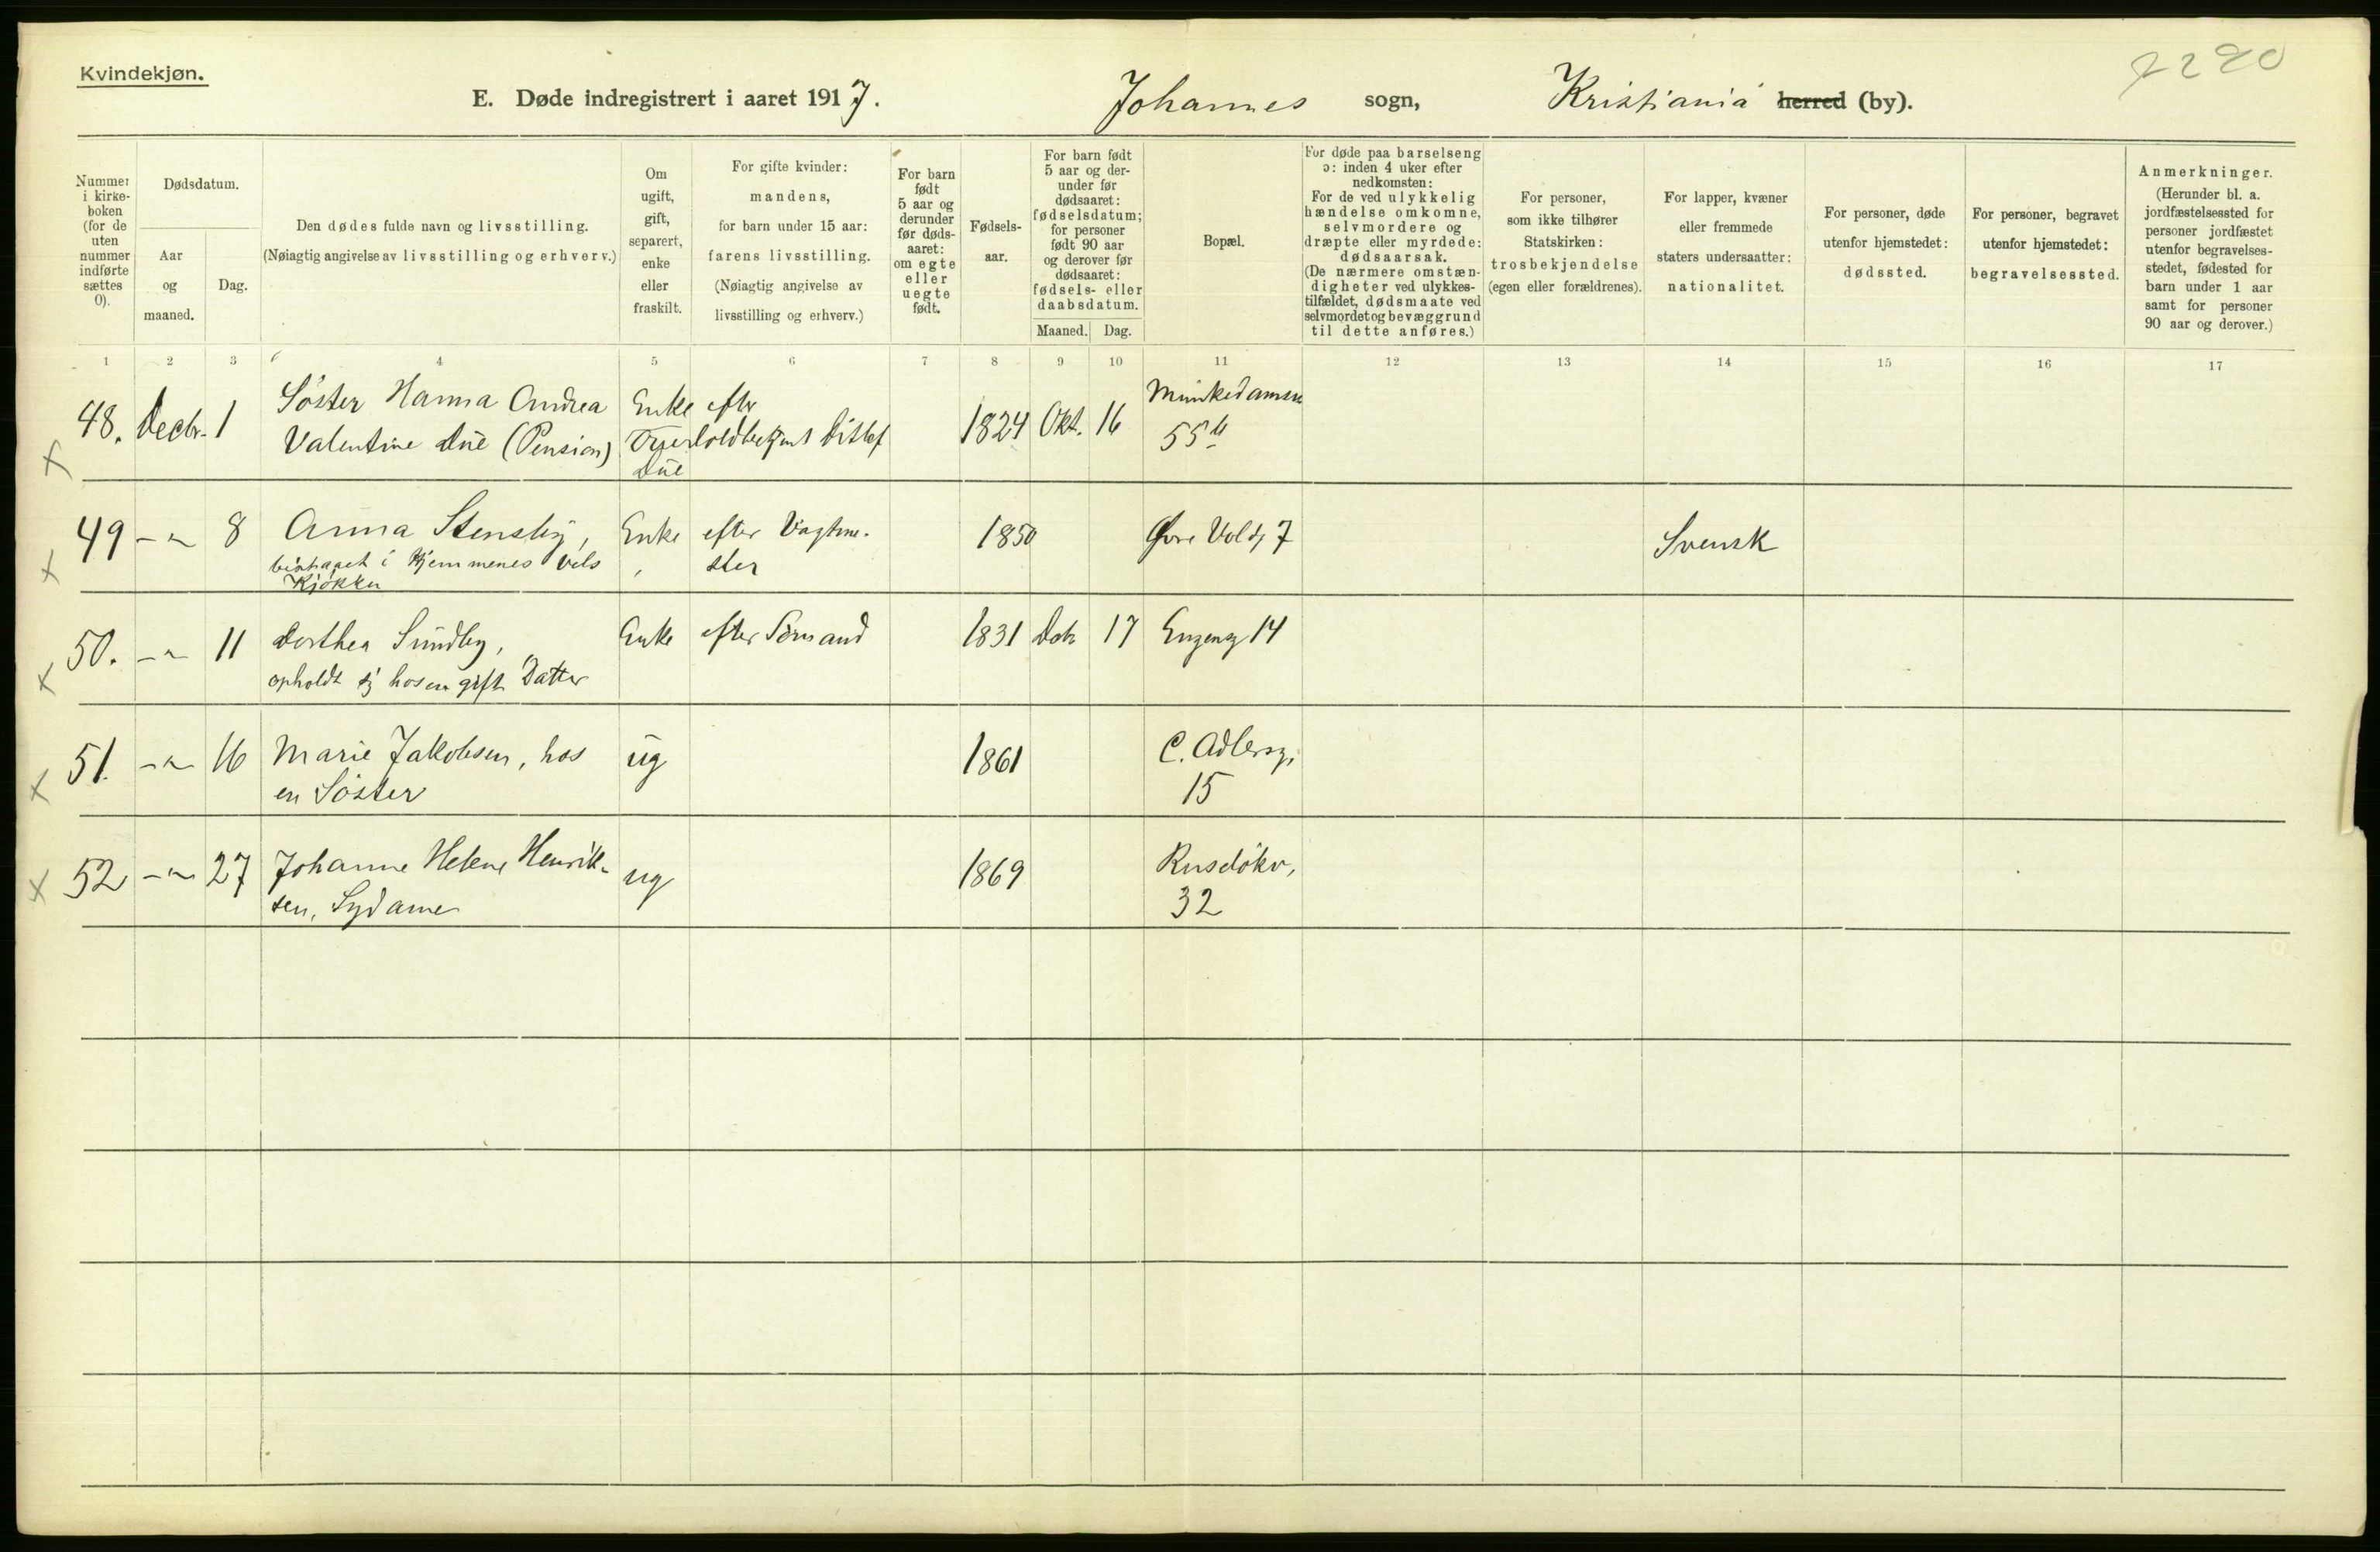 Kvindekjøn.
2220
E. Døde indregistrert i aaret 1917. Johannes sogn, Kristiania herred (by).
Nummer i kirkeboken (for de uten nummer indførte sættes 0).
Dødsdatum.
Aar og maaned.
Dag.
Den dødes fulde navn og livsstilling.
(Nøiagtig angivelse av livsstilling og erhverv.)
Om ugift, gift, separert, enke eller fraskilt.
For gifte kvinder: mandens, for barn under 15 aar: farens livsstilling. (Nøiagtig angivelse av livsstilling og erhverv.)
For barn født 5 aar og derunder før dødsaaret: om egte eller uegte født.
Fødselsaar.
For barn født 5 aar og derunder før dødsaaret: fødselsdatum; for personer født 90 aar og derover før dødsaaret: fødsels- eller daabsdatum.
Maaned. Dag.
Bopæl.
For døde paa barselseng ɔ: inden 4 uker efter nedkomsten: For de ved ulykkelig hændelse omkomne, selvmordere og dræpte eller myrdede: dødsaarsak. (De nærmere omstændigheter ved ulykkestilfældet, dødsmaate ved selvmordet og bevæggrund til dette anføres.)
For personer, som ikke tilhører Statskirken: trosbekjendelse (egen eller forældrenes).
For lapper, kvæner eller fremmede staters undersaatter: nationalitet.
For personer, døde utenfor hjemstedet: dødssted.
For personer, begravet utenfor hjemstedet: begravelsessted.
Anmerkninger. (Herunder bl. a. jordfæstelsessted for personer jordfæstet utenfor begravelsesstedet, fødested for barn under 1 aar samt for personer 90 aar og derover.)
1 2 3 4 5 6 7 8 9 10 11 12 13 14 15 16 17
48. Decbr. 1 Søster Hanna Andrea Enke efter 1824 Okt. 16 Munkedamsv
Valentine Due (Pension) Ditlef 55
Due
49 -"- 8 Anna Stensby, Enke efter Vagtme- 1850 Øvre Voldg 7 Svensk
i Hjemmenes Vels ster
Kjøkken
50. -"- 11 Dorthea Sundby, Enke efter 1831 17 Eugensg 14
opholdt sig hos en gift Datter
51. -"- 16 Marie Jakobsen, hos ug 1861 C. Adlersg.
en Søster 15
52 -"- 27 Johanne Helene Henrik- ug 1869 Ruseløkv,
sen, Sydame 32